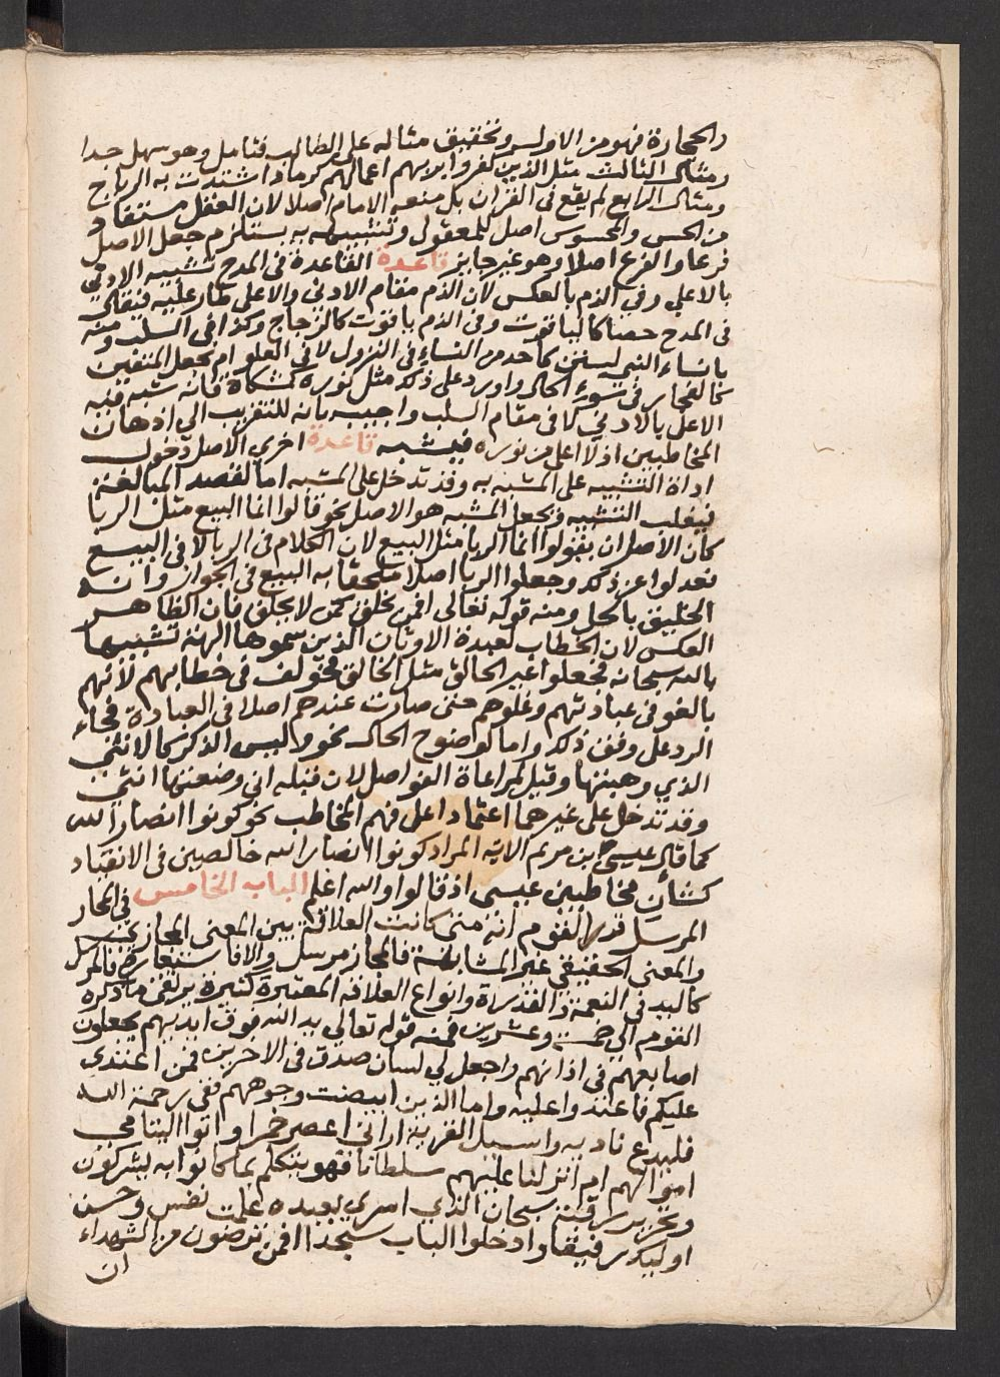 والحجارة فهو من الاول وتحقيق مثاله على الطالب فتامل وهو سهل جدا
ومثال الثالث مثل الذين كفروا بربهم اعمالهم كرماد اشتدت به الرياح
ومثال الرابع لم يقع في القران بل منعه الامام اصلا لان العقل مستفاد
من الحس والمحسوس اصل للمعقول وتشبيهه به يستلزم جعل الاصل
فرعا والفرع اصلا وهو غير جايز قاعدة القاعدة في المدح تشبيه الادنى
بالاعلى وفي الذم بالعكس لان الذم مقام الادنى والاعلى طار عليه فيقال
في المدح حصا كالياقوت وفي الذم ياقوت كالزجاج وكذا في السلب ومنه
يا نساء النبي لستن كاحد من النساء اي في النزول لا في العلو ام نجعل المتقين
كالفجار اي في سوء الحال واورد على ذلك مثل نوره كمشكاة فانه شبه فيه
الاعلى بالادنى لا في مقام السلب واجيب بانه للتقريب الى اذهان
المخاطبين اذ لا اعلى من نوره فيشبه قاعدة اخرى الاصل دخول
اداة التشبيه على المشبه به وقد تدخل على المشبه اما لقصد المبالغة
فيقلب التشبيه ويجعل المشبه هو الاصل نحو قالوا انما البيع مثل الربا
كان الاصل ان يقولوا انما الربا مثل البيع لان الكلام في الربا لا في البيع
فعدلوا عن ذلك وجعلوا الربا اصلا ملحقا به البيع في الجواز وانه
الخليق بالحل ومنه قوله تعالى افمن يخلق كمن لا يخلق فان الظاهر
العكس لان الخطاب لعبدة الاوثان الذين سموها الهة تشبيها
بالله سبحانه فجعلوا غير الخالق مثل الخالق فخولف في خطابهم لانهم
بالغو في عبادتهم وغلوهم حتى صارت عندهم اصلا في العبادة فجاء
الرد على وفق ذلك واما لوضوح الحال نحو وليس الذكر كالانثى
الذي وهبتها وقيل لمراعاة الفواصل لان قبله اني وضعتها انثى
وقد تدخل على غيرهما اعتمادا على فهم المخاطب نحو كونوا انصار الله
كما قال عيسى بن مريم الاية المراد كونوا انصار الله خالصين في الانقياد
كشان مخاطبين عيسى اذ قالوا والله اعلم الباب الخامس في المجاز
المرسل قد تقدم انه متى كانت العلاقة بين المعنى المجازي
والمعنى الحقيقي غير المشابهة فالمجاز مرسل والا فاستعارة فالمرسل
كاليد في النعمة والقدرة وانواع العلاقة المعتبرة كثيرة يرتقى ما ذكره
القوم الى خمسة وعشرين فمنه قوله تعالى يد الله فوق ايديهم يجعلون
اصابعهم في اذانهم واجعل لي لسان صدق في الاخرين فمن اعتدى
عليكم فاعتدوا عليه واما الذين ابيضت وجوههم ففي رحمة الله
فليدع ناديه واسيل القرية اراني اعصر خمرا واتوا اليتامى
اموالهم ام انزلنا عليهم سلطانا فهو يتكلم بما كانوا به يشركون
وتحرير رقبة سبحان الذي اسرى بعبده علمت نفس وحسن
اوليك رفيقا وادخلوا الباب سجدا ممن ترضون من الشهداء
ان